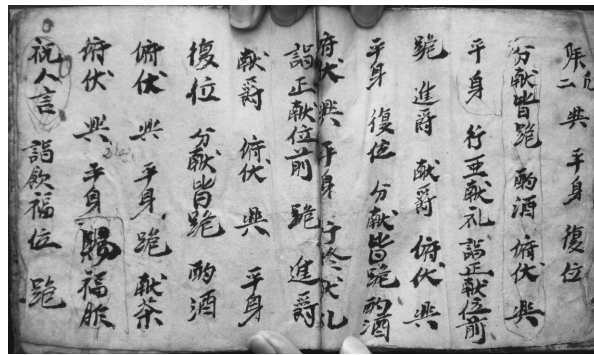 兴 平身 復位
分献皆跪 酌酒 俯伏 兴
平身 行亚献礼 詣正献位前
跪 進爵 献爵 俯伏 兴
平身 復位 分献皆跪 酌酒
俯伏 兴 平身 行終献礼
詣正献位前 跪 進爵
献爵 俯伏 兴 平身
復位 分献皆跪 酌酒
俯伏 兴 平身 跪 献茶
俯伏 兴 平身 賜福胙
祝人言 詣飲福位 跪